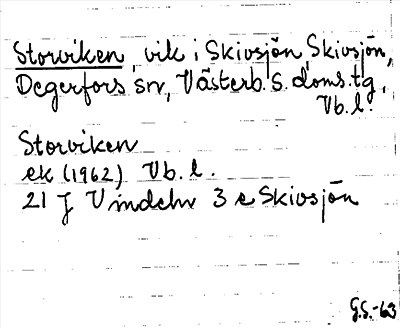 Storviken, vik i Skivsjön, Skivsjön,
Degerfors sn, Västerb. s. doms. tg,
Vb. l.
Storviken
ek (1962) Vb. l.
21 J Vindeln 3 e Skivsjön
G.S.-63